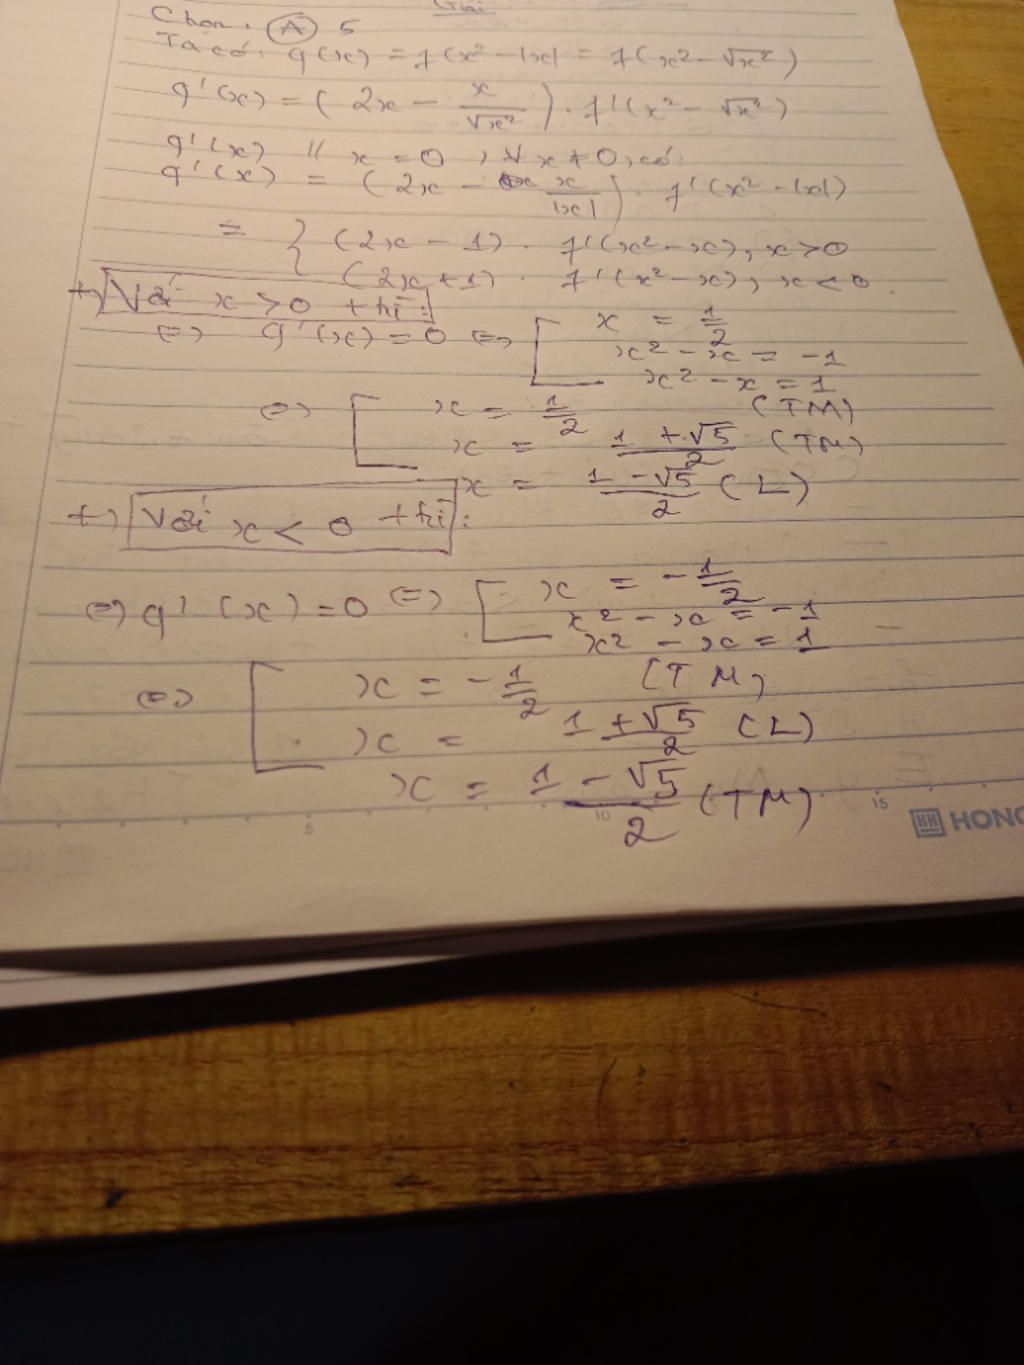 Giải
Chọn: A 5
Ta có: g(x) = f(x² - |x| = f(x² - √x²)
g'(x) = (2x - x/√x²) . f'(x² - √x²)
g'(x) || x = 0, ∀x ≠ 0, có:
g'(x) = (2x - x/|x|) . f'(x² - |x|)
= { (2x - 1) . f'(x² - x), x > 0
(2x + 1) . f'(x² - x), x < 0.
+) Với x > 0 thì:
⇔ g'(x) = 0 ⇔ [ x = 1/2
x² - x = -1
x² - x = 1
⇔ [ x = 1/2 (TM)
x = 1 + √5/2 (TM)
x = 1 - √5/2 (L)
+) Với x < 0 thì:
⇔ g'(x) = 0 ⇔ [ x = -1/2
x² - x = -1
x² - x = 1
⇔ [ x = -1/2 (TM)
x = 1 + √5/2 (L)
x = 1 - √5/2 (TM)
5 10 15 HONG